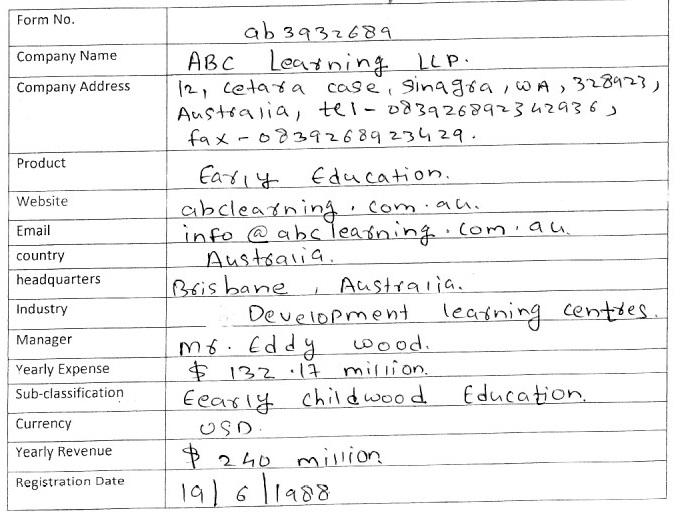 Form No. ab3932689
Company Name ABC Learning LLP.
Company Address 12, cetara case, sinagra, WA, 328923,
Australia, tel - 083926892342936,
fax - 0839268923429.
Product Early Education.
Website abclearning.com.au.
Email info@abclearning.com.au.
country Australia.
headquarters Brisbane, Australia.
Industry Development learning centres.
Manager Mr. Eddy wood.
Yearly Expense $ 132.17 million.
Sub-classification Eearly childwood Education.
Currency USD.
Yearly Revenue $ 240 million
Registration Date 19/6/1988